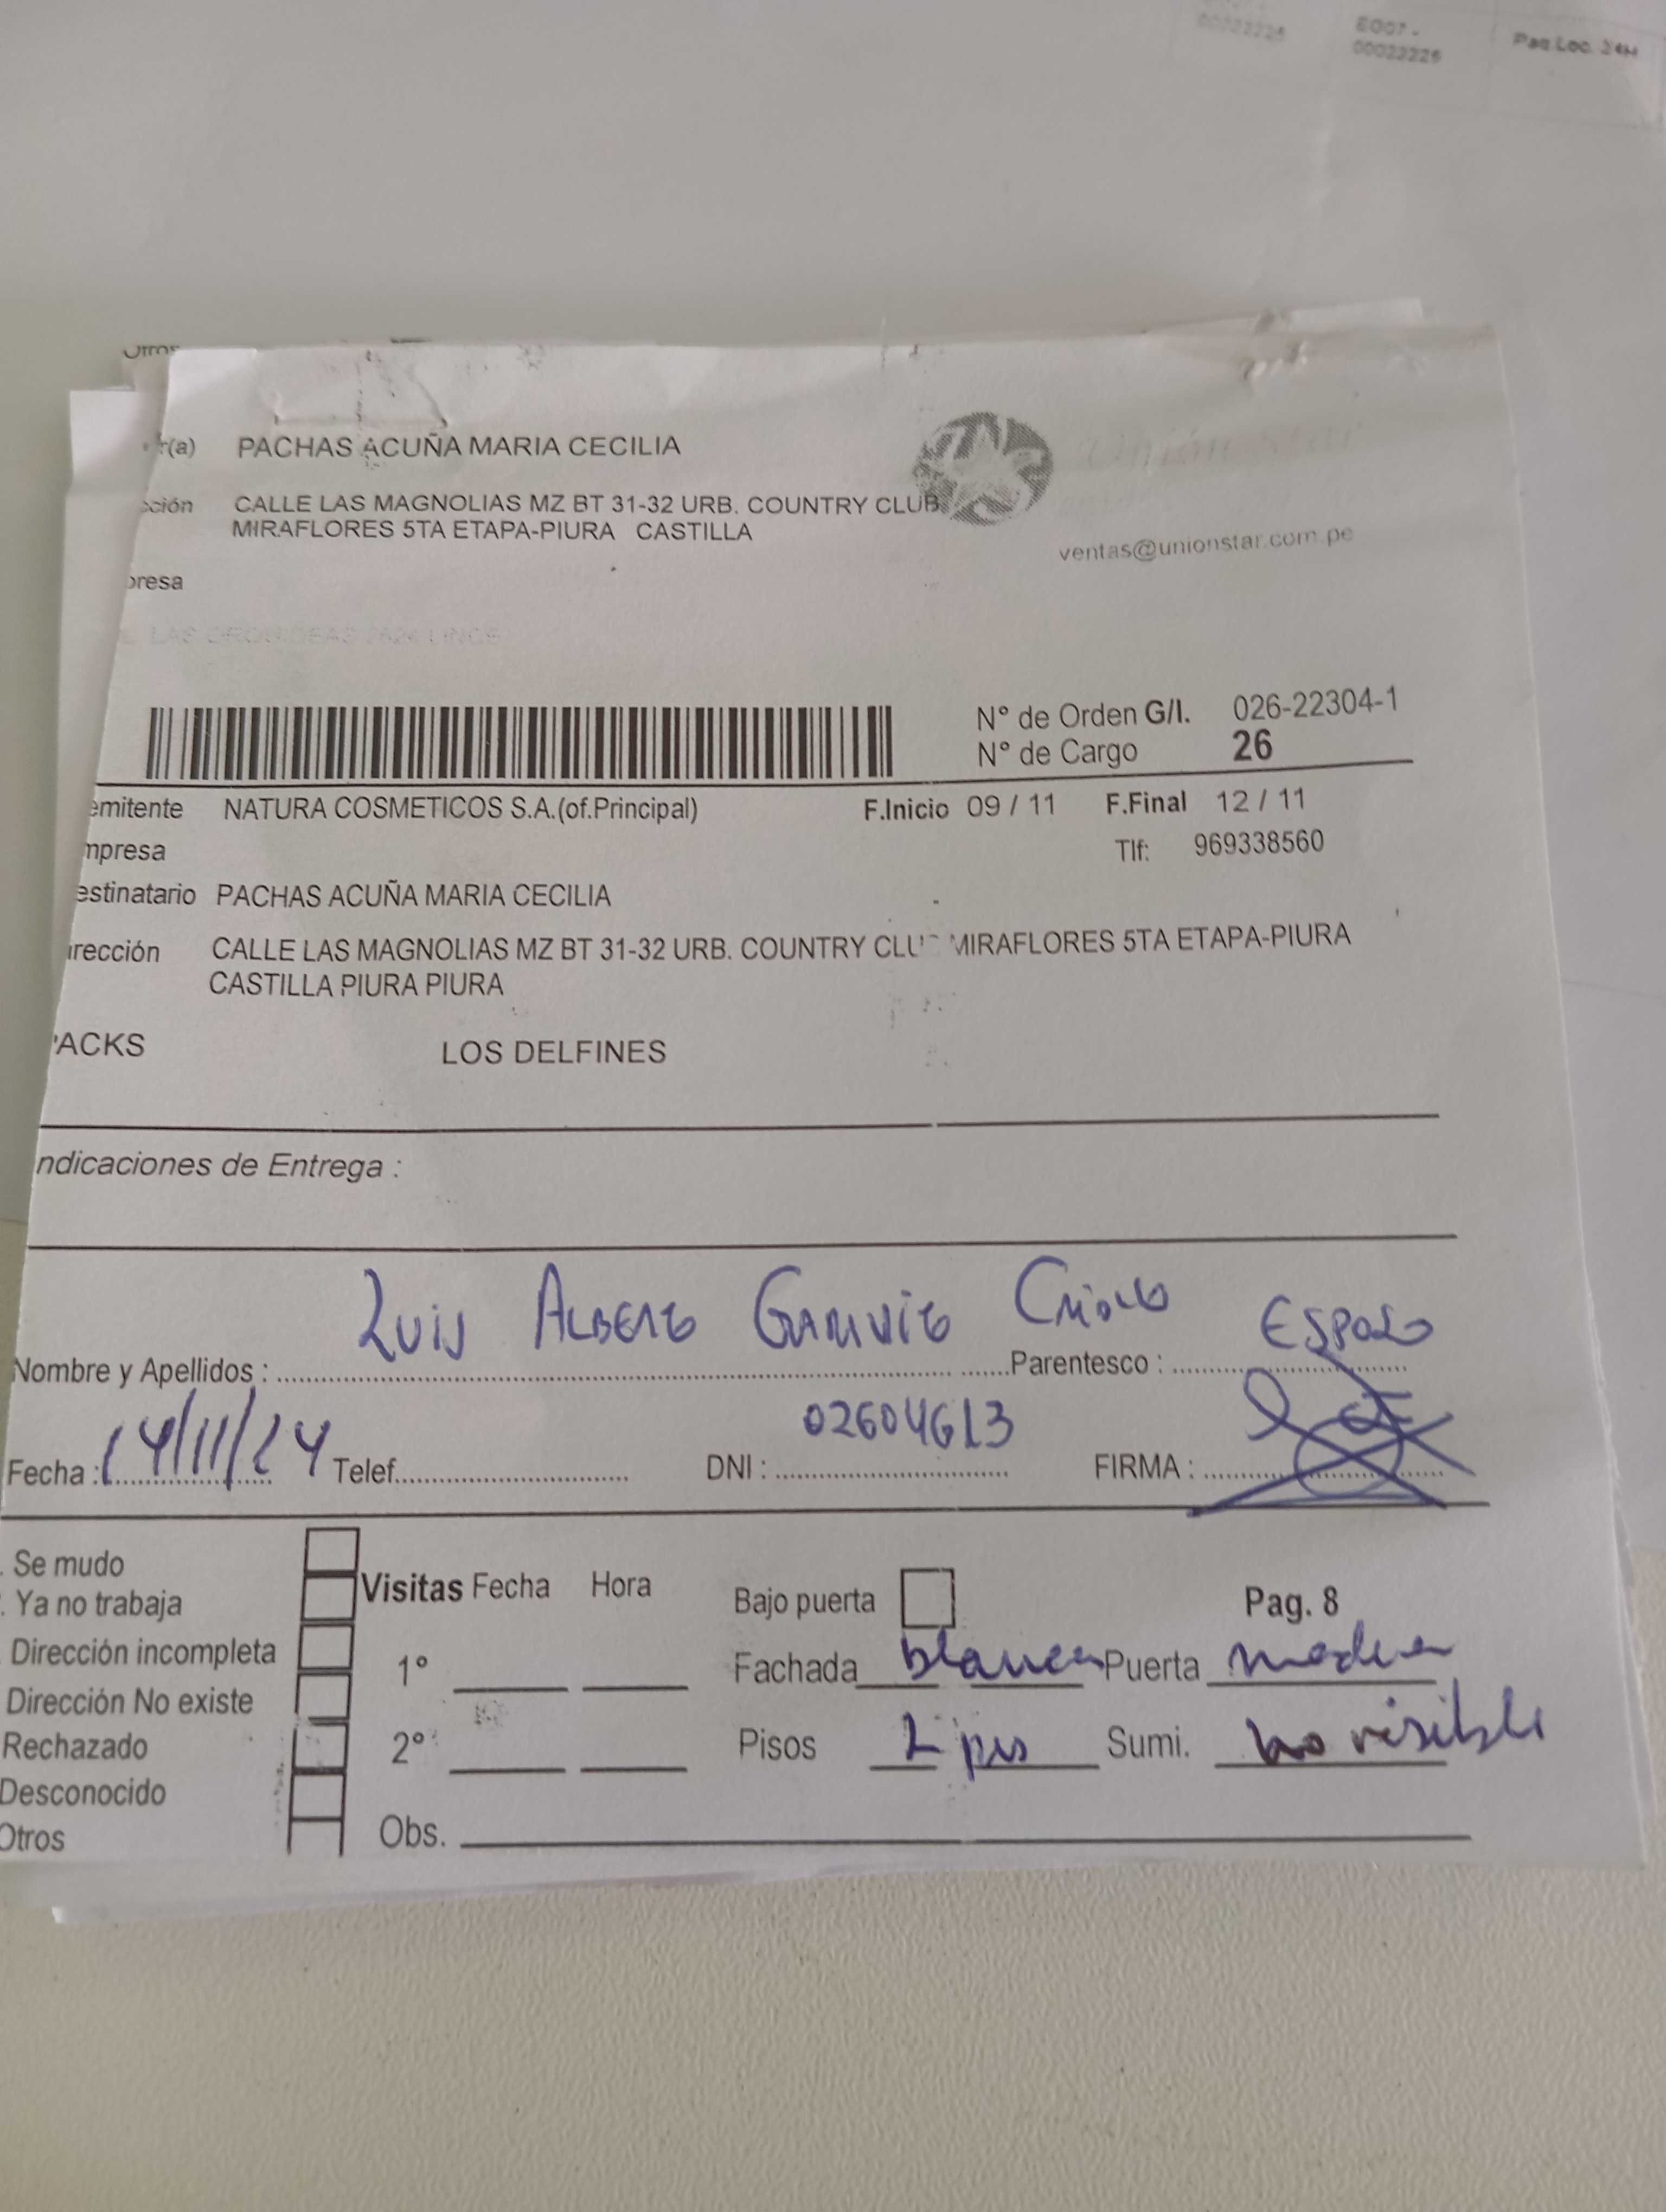 00022225
EO07 -
00022225
Paq.Loc. 24H
Otros
r(a) PACHAS ACUÑA MARIA CECILIA
cción CALLE LAS MAGNOLIAS MZ BT 31-32 URB. COUNTRY CLUB
MIRAFLORES 5TA ETAPA-PIURA CASTILLA
ventas@unionstar.com.pe
presa
LAS ORQUIDEAS LINCE
Nº de Orden G/I. 026-22304-1
Nº de Cargo 26
emitente NATURA COSMETICOS S.A.(of.Principal) F.Inicio 09 / 11 F.Final 12 / 11
mpresa Tlf: 969338560
estinatario PACHAS ACUÑA MARIA CECILIA
irección CALLE LAS MAGNOLIAS MZ BT 31-32 URB. COUNTRY CLU MIRAFLORES 5TA ETAPA-PIURA
CASTILLA PIURA PIURA
PACKS LOS DELFINES
ndicaciones de Entrega :
Nombre y Apellidos : Luis Alberto Garavito Criollo Parentesco : Esposo
Fecha : 14/11/24 Telef. DNI : 02604613 FIRMA :
Se mudo
Ya no trabaja
Dirección incompleta
Dirección No existe
Rechazado
Desconocido
Otros
Visitas Fecha Hora
1º
2º
Obs.
Bajo puerta Pag. 8
Fachada blanca Puerta madera
Pisos 2 pis Sumi. no visible